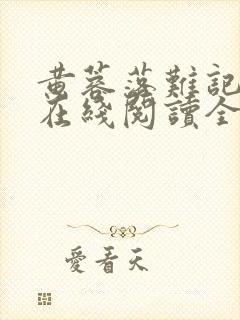 黄蓉落難記
在綫閱讀全
愛看天